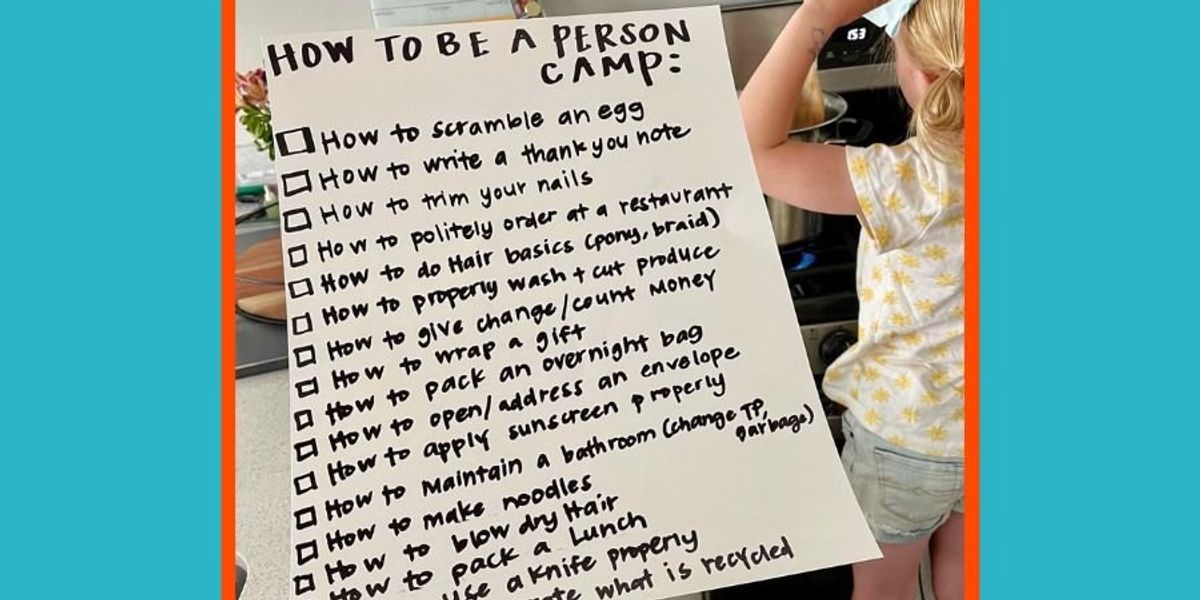 HOW TO BE A PERSON
CAMP:
How to scramble an egg
How to write a thank you note
How to trim your nails
How to politely order at a restaurant
How to do Hair basics (pony, braid)
How to properly wash + cut produce
How to give change/count money
How to wrap a gift
How to pack an overnight bag
How to open/address an envelope
How to apply sunscreen properly
How to maintain a bathroom (change TP,
garbage)
How to make noodles
How to blow dry Hair
How to pack a Lunch
use a knife properly
what is recycled